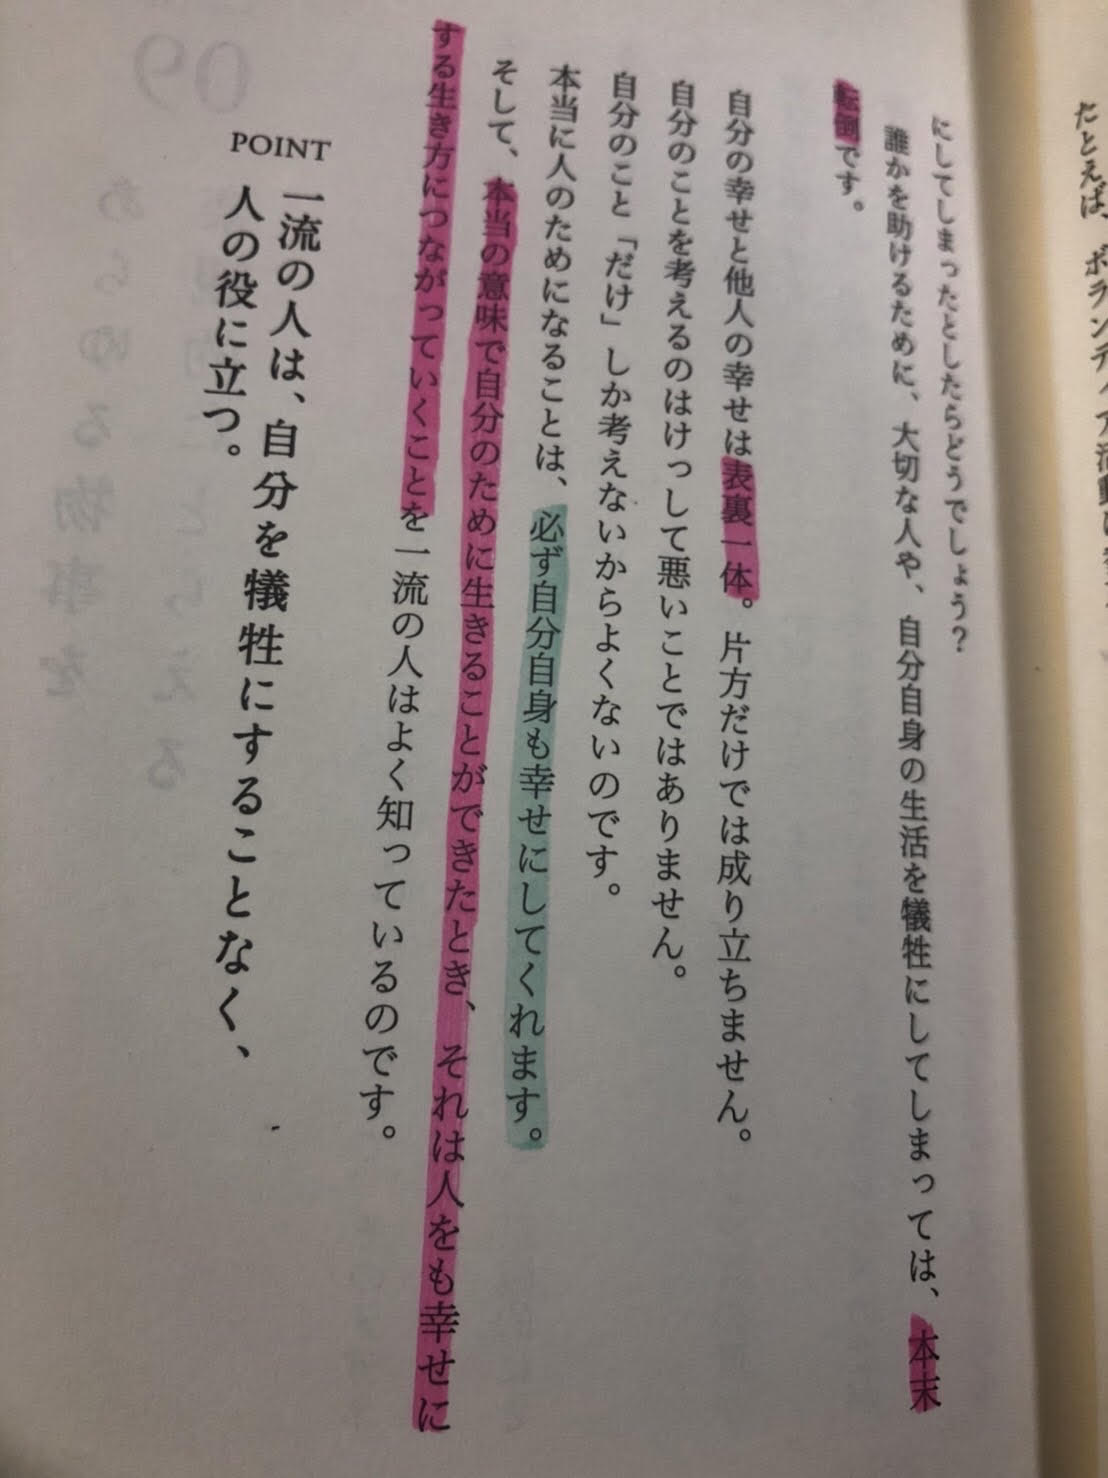 たとえば、ボランティア活動
にしてしまったとしたらどうでしょう？
誰かを助けるために、大切な人や、自分自身の生活を犠牲にしてしまっては、本末
転倒です。
自分の幸せと他人の幸せは表裏一体。片方だけでは成り立ちません。
自分のことを考えるのはけっして悪いことではありません。
自分のこと「だけ」しか考えないからよくないのです。
本当に人のためになることは、必ず自分自身も幸せにしてくれます。
そして、本当の意味で自分のために生きることができたとき、それは人をも幸せに
する生き方につながっていくことを一流の人はよく知っているのです。
POINT
一流の人は、自分を犠牲にすることなく、
人の役に立つ。